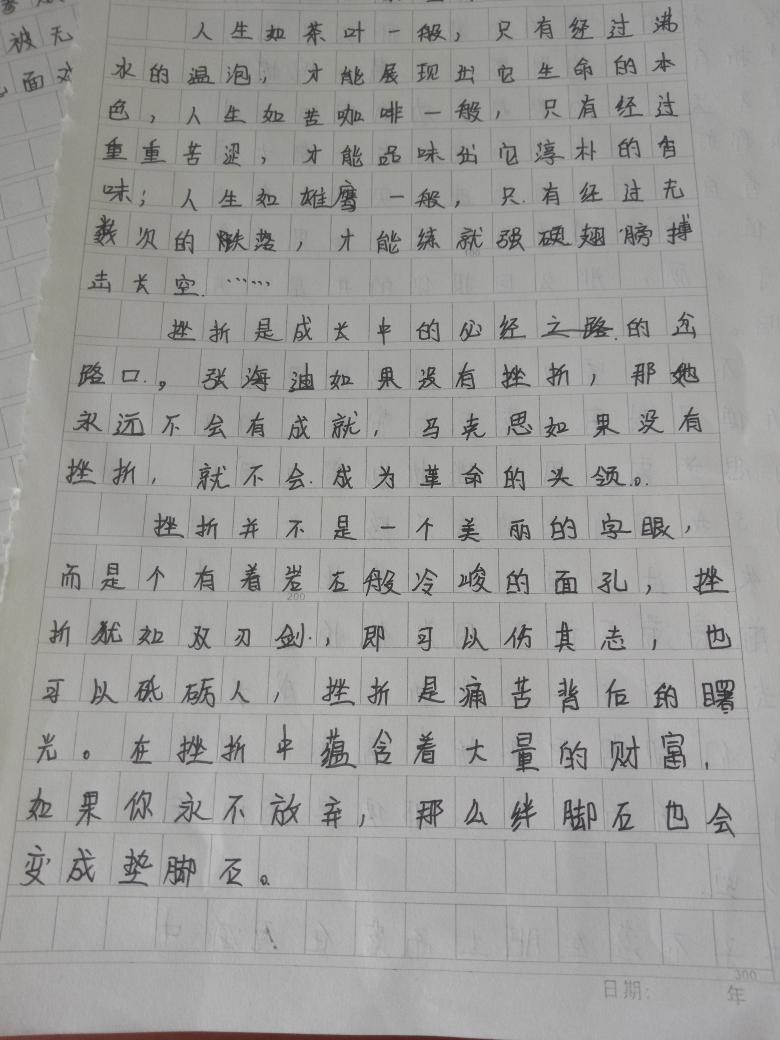 被无
面对
人生如茶叶一般，只有经过沸
水的温泡，才能展现出它生命的本
色，人生如苦咖啡一般，只有经过
重重苦涩，才能品味出它淳朴的香
味；人生如雄鹰一般，只有经过无
数次的跌落，才能练就强硬翅膀搏
击长空……
100
挫折是成长中的必经之路的岔
路口。张海迪如果没有挫折，那她
永远不会有成就，马克思如果没有
挫折，就不会成为革命的头领。
挫折并不是一个美丽的字眼，
而是个有着岩石般冷峻的面孔，挫
200
折犹如双刃剑，即可以伤其志，也
可以砥砺人，挫折是痛苦背后的曙
光。在挫折中蕴含着大量的财富，
如果你永不放弃，那么绊脚石也会
变成垫脚石。
300
日期： 年